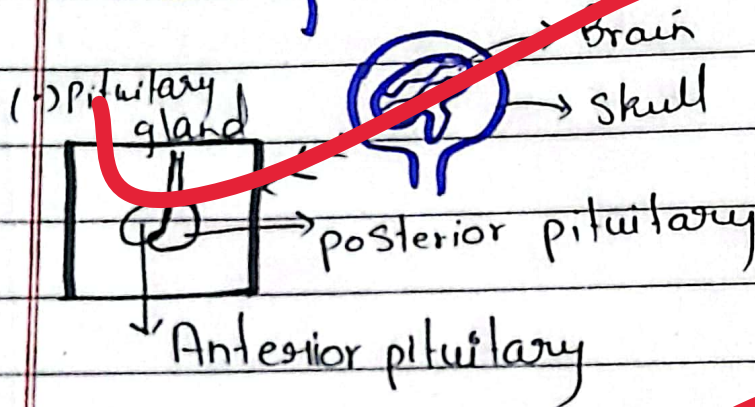 Brain
(·) Pituitary
gland
Skull
posterior pituitary
Anterior pituitary